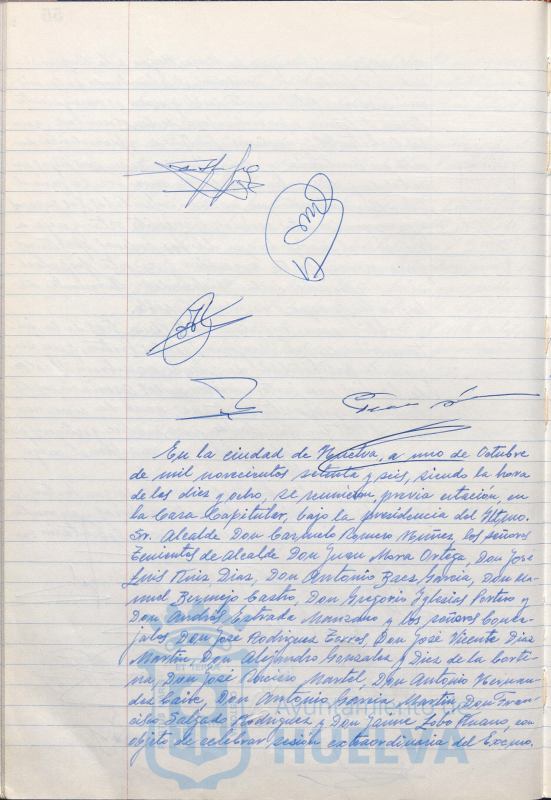 En la ciudad de Huelva, a uno de Octubre
de mil novecientos setenta y seis, siendo la hora
de las diez y ocho, se reunieron, previa citación, en
la Casa Capitular, bajo la presidencia del Iltmo.
Sr. Alcalde Don Carmelo Romero Núñez, los señores
Tenientes de Alcalde Don Juan Mora Ortega, Don José
Luis Ruiz Díaz, Don Antonio Baez García, Don Ma-
nuel Bermejo Castro, Don Gregorio Iglesias Portero y
Don Andrés Estrada Manzano y los señores Conce-
jales Don José Rodríguez Don José Vicente Díaz
Martín, Don Alejandro González y Díez de la Corti-
na, Don José Martel, Don Antonio Hernan-
dez Don Antonio García Martín, Don Fran-
cisco Salgado Rodríguez y Don Jaime Lobo con
objeto de celebrar sesión extraordinaria del Excmo.
HUELVA